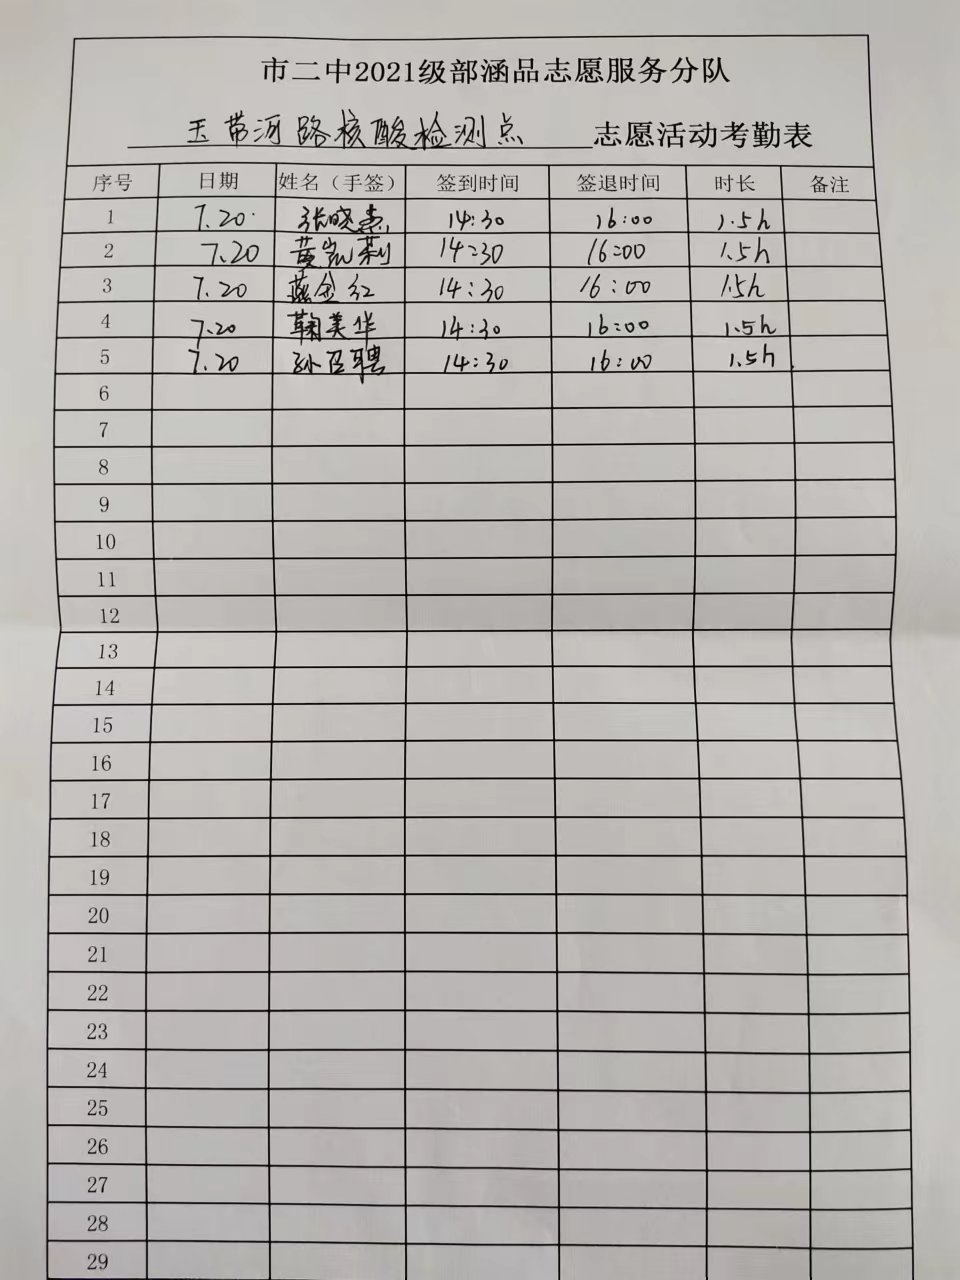 市二中2021级部涵品志愿服务分队
玉带河路核酸检测点 志愿活动考勤表
序号 日期 姓名（手签） 签到时间 签退时间 时长 备注
1 7.20 张晓杰 14:30 16:00 1.5h
2 7.20 黄岚莉 14:30 16:00 1.5h
3 7.20 燕金红 14:30 16:00 1.5h
4 7.20 鞠美华 14:30 16:00 1.5h
5 7.20 孙臣聘 14:30 16:00 1.5h
6
7
8
9
10
11
12
13
14
15
16
17
18
19
20
21
22
23
24
25
26
27
28
29